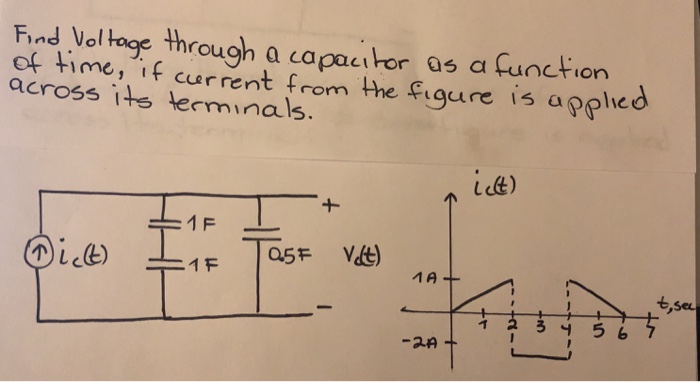 Find Voltage through a capacitor as a function
of time, if current from the figure is applied
across its terminals.
ic(t)
1F
1F
0.5F
Vc(t)
+
-
ic(t)
1A
-2A
1 2 3 4 5 6 7
t,sec